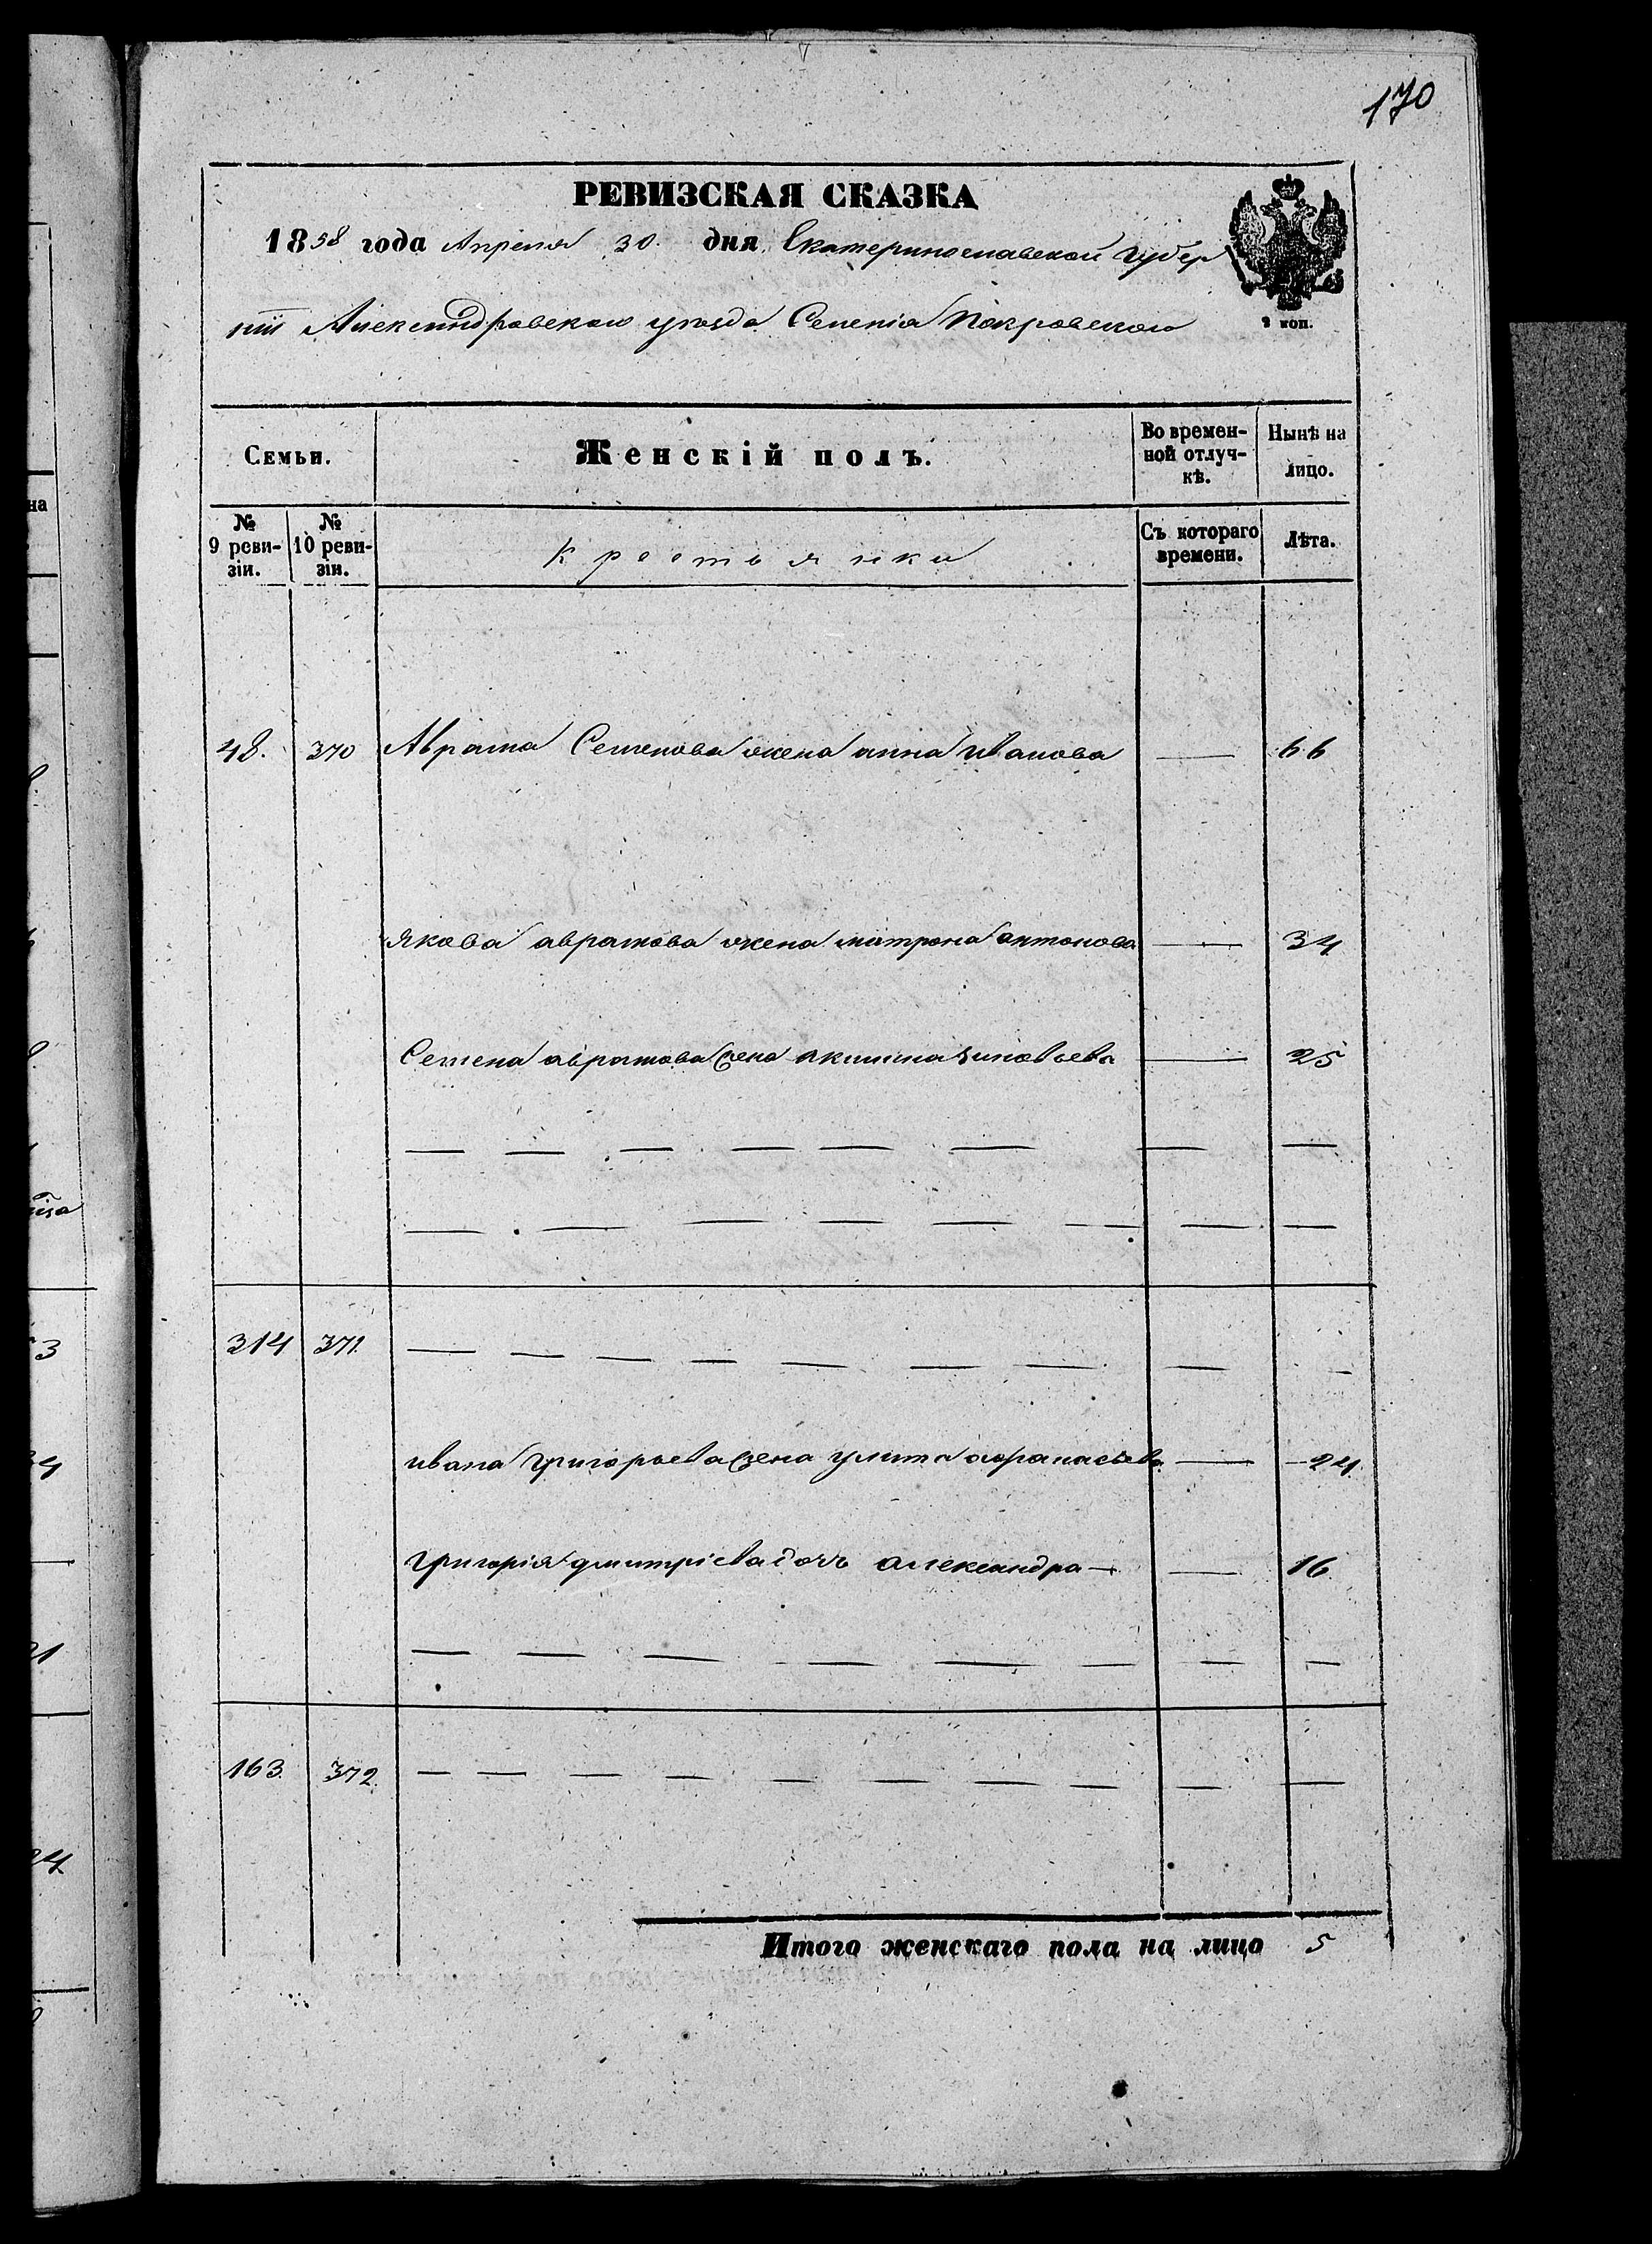 170
РЕВИЗСКАЯ СКАЗКА
1858 года Апреля 30. дня Екатеринославской Губер
нiи Александровскаго уезда Селенiя Покровскаго
2 коп.
Семьи. Женскій полъ. Во времен- Нынѣ на
ной отлуч- лицо.
кѣ.
№ № Крестьянки Съ котораго Лѣта.
9 реви- 10 реви- времени.
зіи. зіи.
48. 370 Аврама Семенова жена анна иванова — 66
Якова аврамова жена матрона антонова — 34
Семена аврамова жена акилина Зиновьева — 25
314 371.
ивана Григорьева жена улита афанасьева — 24.
Григорія дмитріева дочь александра — 16.
163. 372.
Итого женскаго пола на лицо 5
на
3
34
21
24